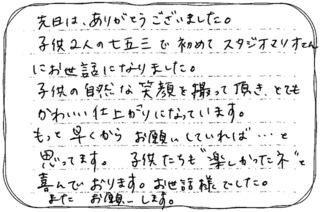 先日は、ありがとうございました。
子供2人の七五三で初めてスタジオマリオさん
にお世話になりました。
子供の自然な笑顔を撮って頂き、とても
かわいい仕上がりになっています。
もっと早くからお願いしていれば…と
思ってます。子供たちも"楽しかったネ"と
喜んでおります。お世話様でした。
またお願いします。